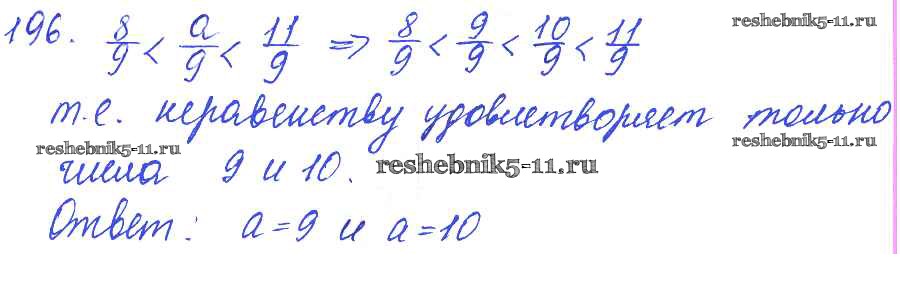 196. 8/9 < a/9 < 11/9 => 8/9 < 9/9 < 10/9 < 11/9
reshebnik5-11.ru
т.е. неравенству удовлетворяет только
reshebnik5-11.ru
reshebnik5-11.ru
числа 9 и 10.
reshebnik5-11.ru
Ответ: a=9 и a=10